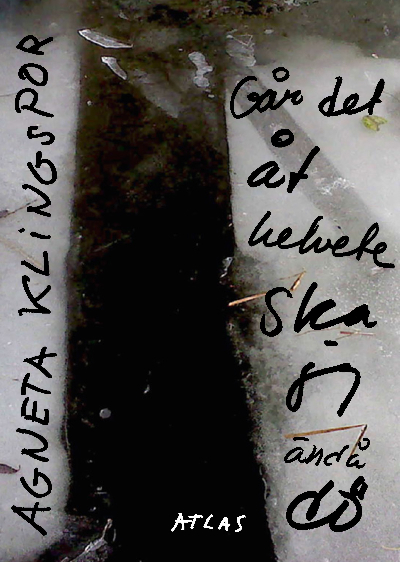 AGNETA KLiNGSPOR
Går det
åt
helvete
Ska
jag
ändå
dö
ATLAS